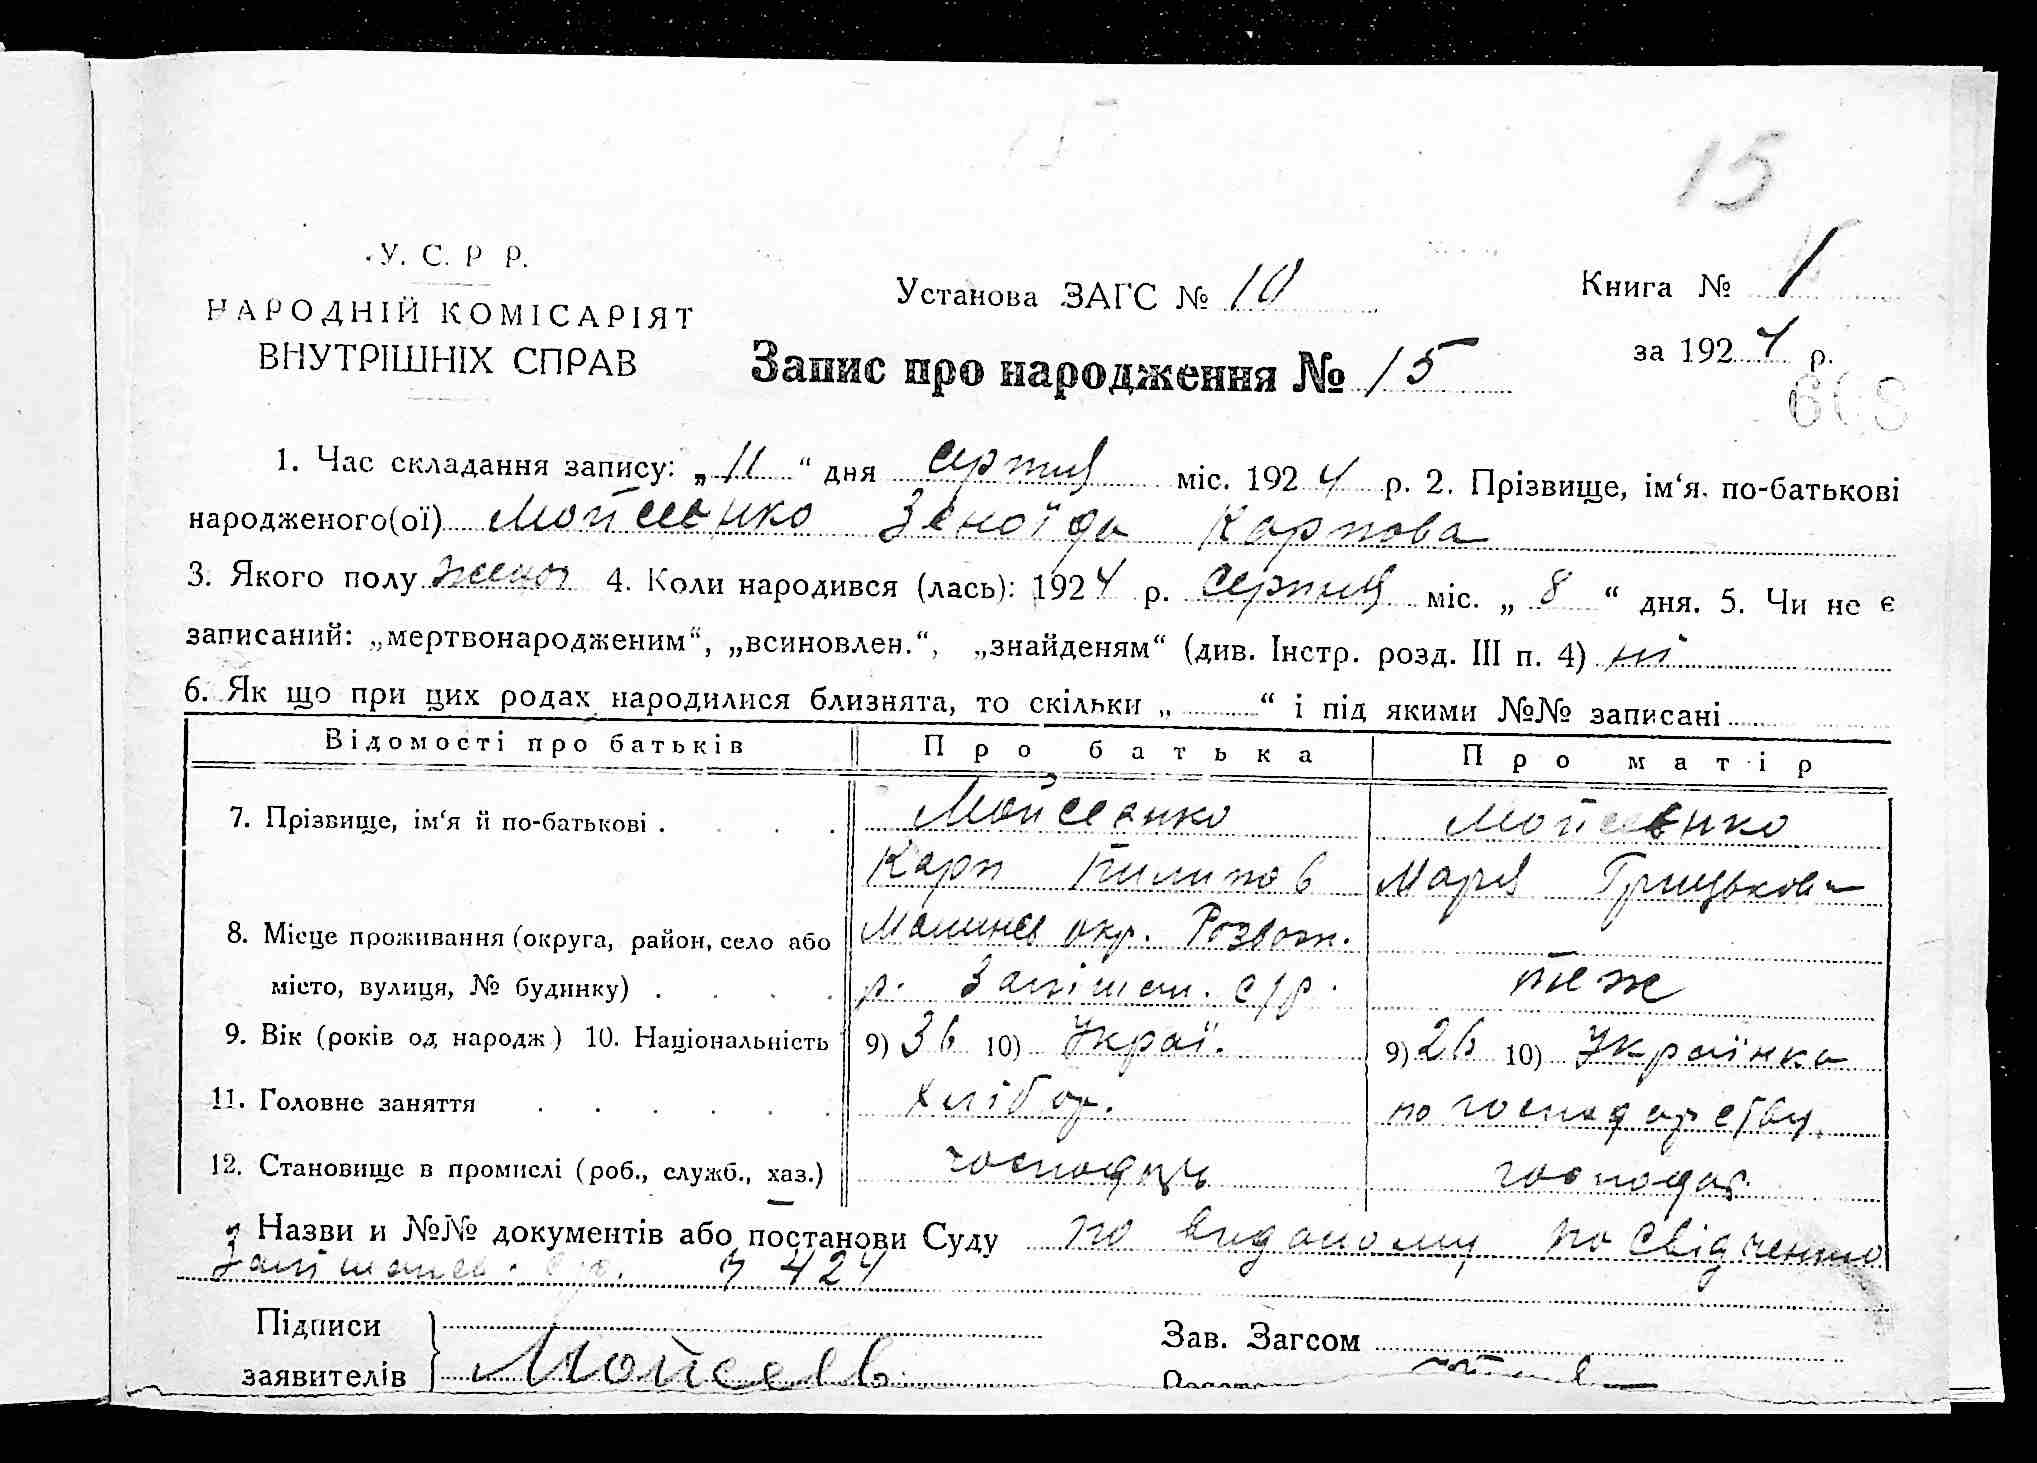 15
У. С. Р Р.
НАРОДНІЙ КОМІСАРІЯТ
ВНУТРІШНІХ СПРАВ
Установа ЗАГС № 10
Книга № 1
за 1924 р.
Запис про народження № 15
1. Час складання запису: „11“ дня серпня міс. 1924 р. 2. Прізвище, ім‘я. по-батькові
народженого(ої) Мойсеєнко Зеноїда Карпова
3. Якого полу жіноч 4. Коли народився (лась): 1924 р. серпня міс. „8“ дня. 5. Чи не є
записаний: „мертвонародженим“, „всиновлен.“, „знайденям“ (див. Інстр. розд. III п. 4) ні
6. Як що при цих родах народилися близнята, то скільки „ “ і під якими №№ записані
Відомості про батьків Про батька Про матір
7. Прізвище, ім‘я й по-батькові . Мойсеєнко Мойсеєнко
Карп Пилипов Марія Грицькова
8. Місце проживання (округа, район, село або Малинсв окр. Розваж.
місто, вулиця, № будинку) . р. Запішан. с/р. теж
9. Вік (років од народж) 10. Національність 9) 36 10) Украї. 9) 26 10) Українка
11. Головне заняття хлібор. по господарству.
12. Становище в промислі (роб., служб., хаз.) господарь господар.
Назви и №№ документів або постанови Суду по виданому посвідченню
424
Підписи
заявителів Мойсеєв
Зав. Загсом